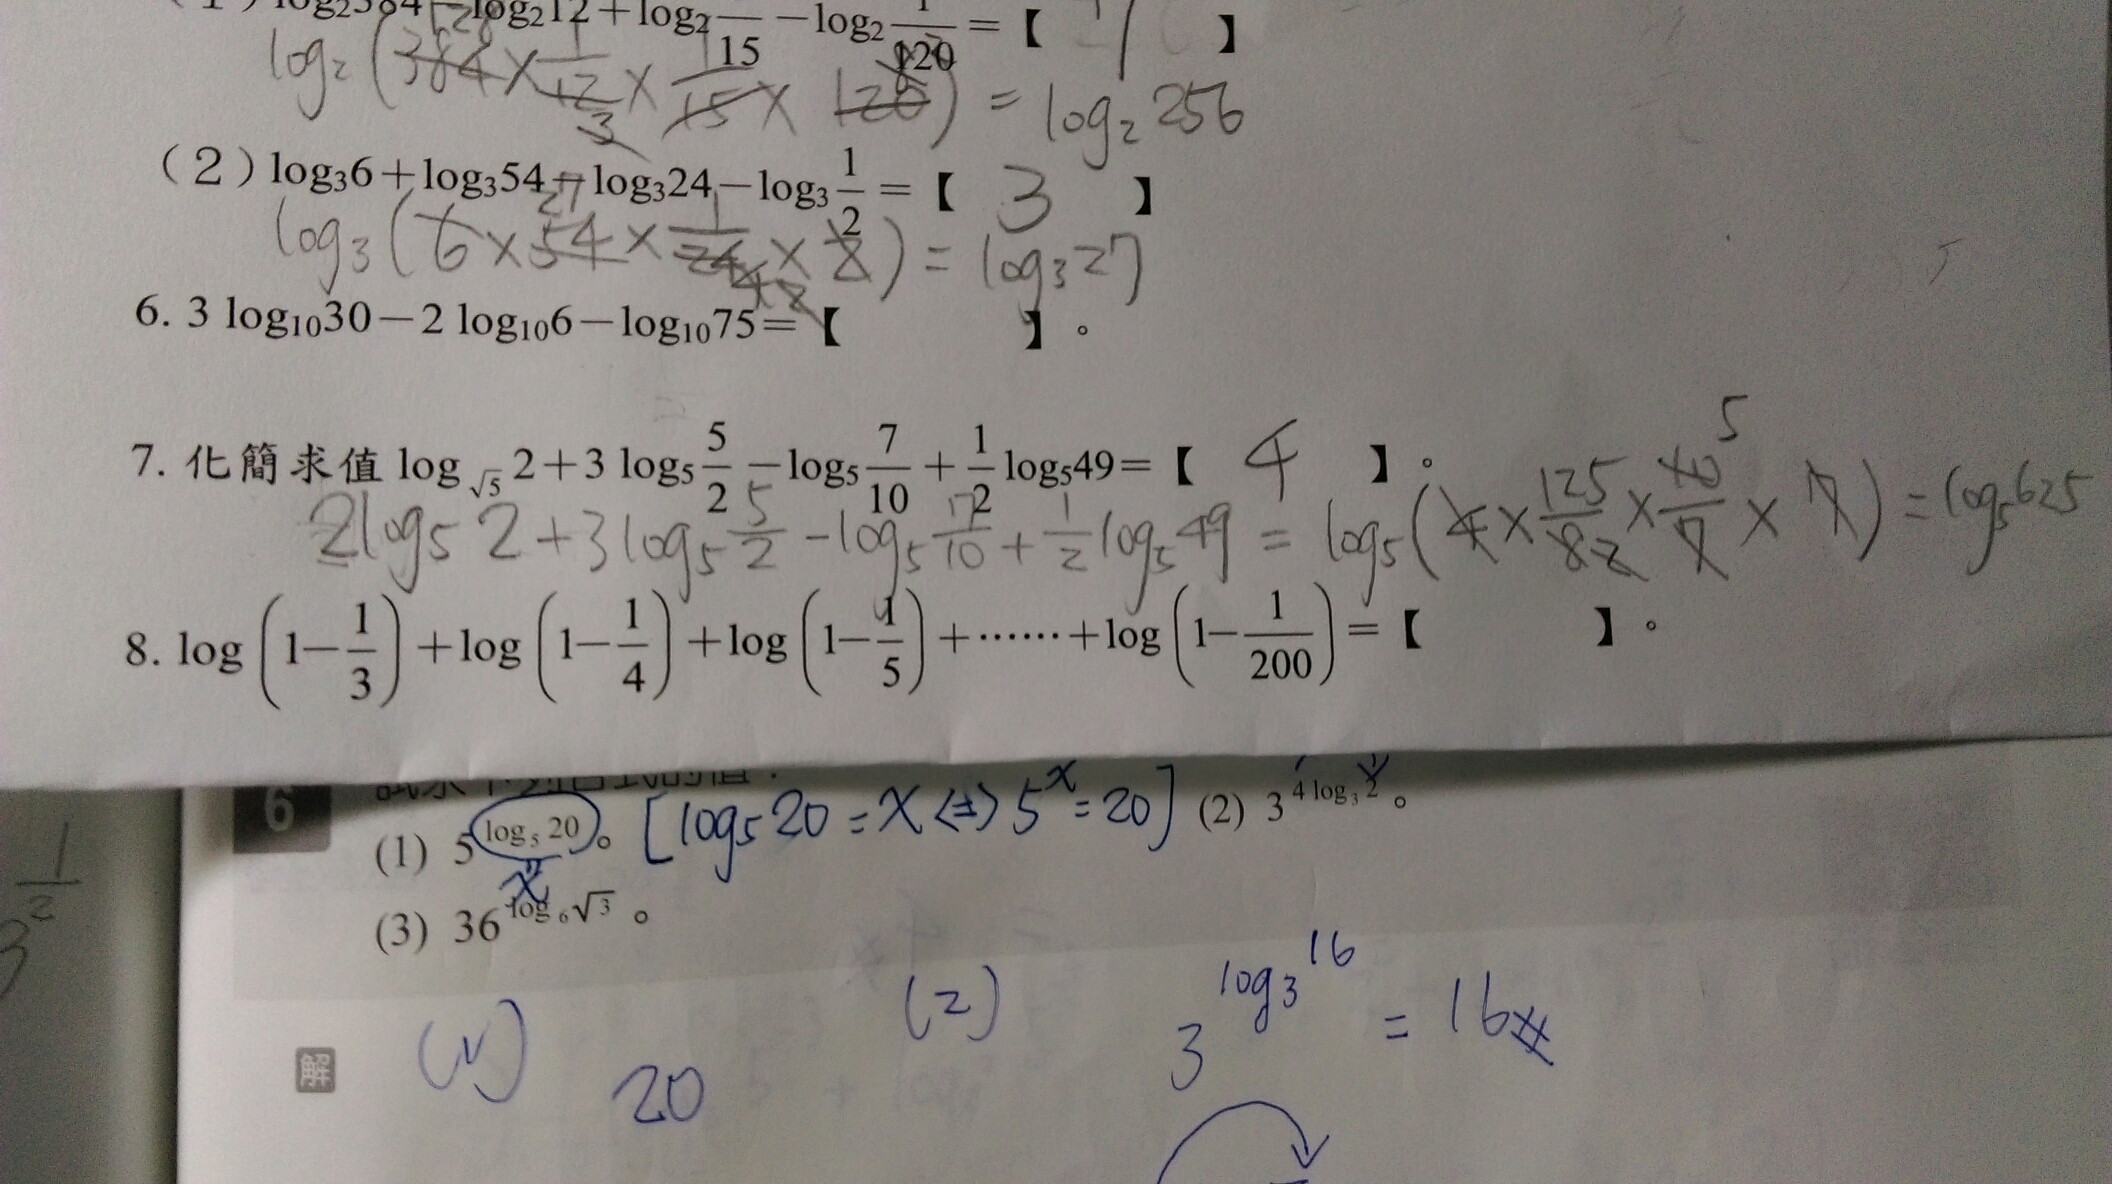 log₂384－log₂12＋log₂1/15－log₂1/120＝【 】
log₂(384×1/12×1/15×120)＝log₂256
(2) log₃6＋log₃54－log₃24－log₃1/2＝【 3 】
log₃(6×54×1/24×2)＝log₃27
6. 3 log₁₀30－2 log₁₀6－log₁₀75＝【 】。
7. 化簡求值 log√5 2＋3 log₅5/2－log₅7/10＋1/2 log₅49＝【 4 】。
2log₅2＋3log₅5/2－log₅7/10＋1/2log₅49＝log₅(4×125/8×10/7×7)＝log₅625
8. log(1－1/3)＋log(1－1/4)＋log(1－1/5)＋……＋log(1－1/200)＝【 】。
6
(1) 5^(log₅20)。 [log₅20＝x⇔5^x＝20] (2) 3^(4 log₃2)。
x
(3) 36^(log₆√3)。
1/2
3
解 (1) 20 (2) 3^(log₃16)＝16